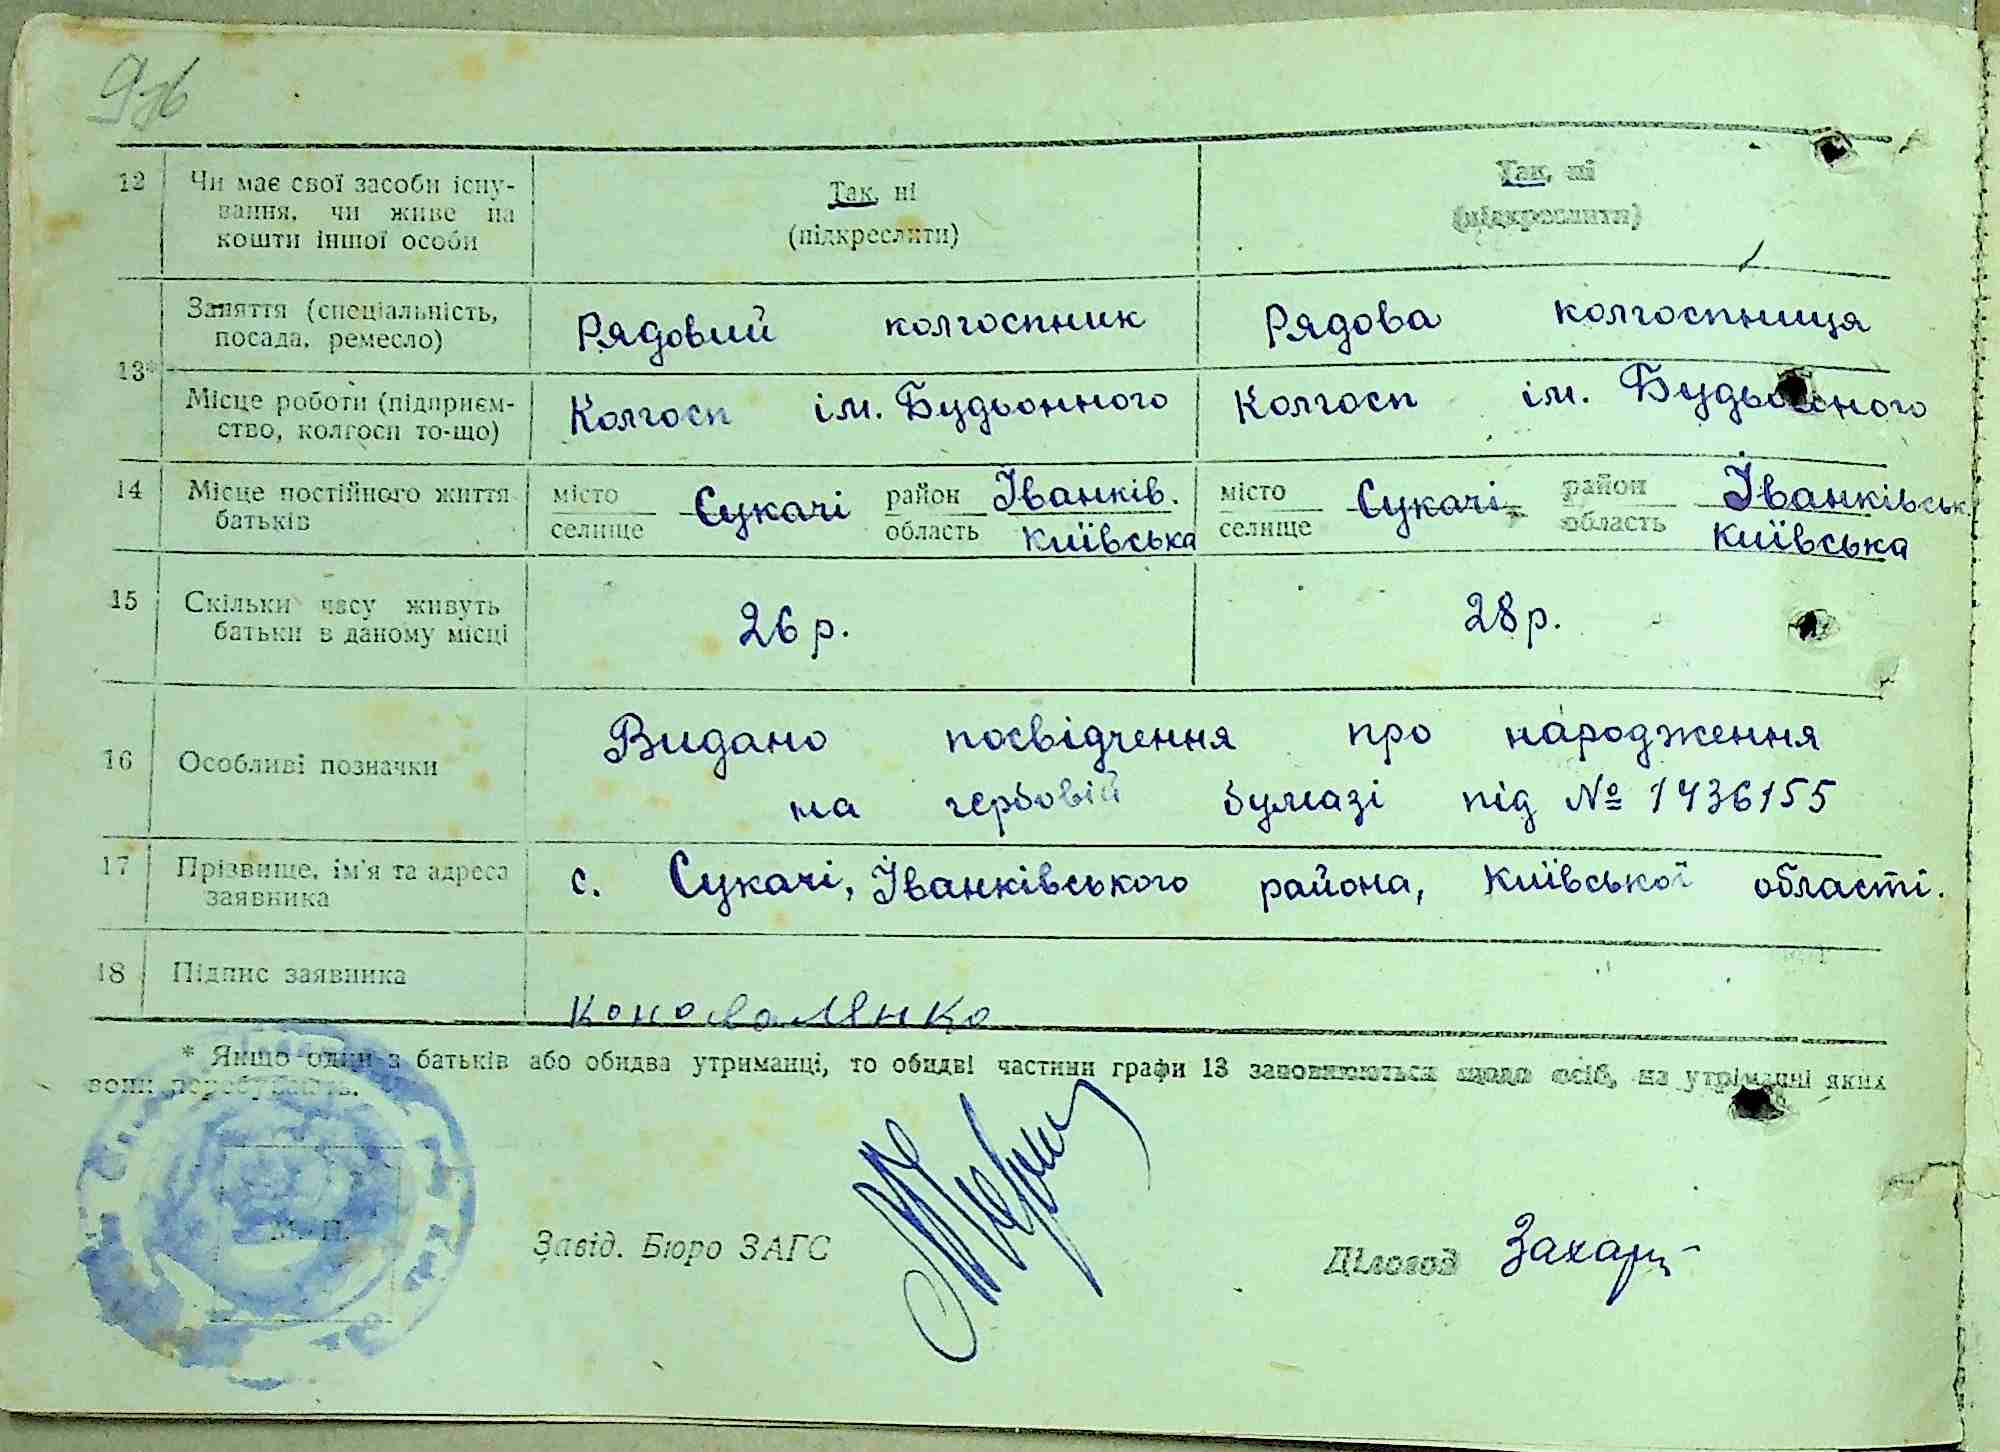 12 Чи має свої засоби існу-
вання, чи живе на
кошти іншої особи
Так, ні
(підкреслити)
Так, ні
(підкреслити)
13*
Заняття (спеціальність,
посада, ремесло)
Рядовий колгоспник
Рядова колгоспниця
Місце роботи (підприєм-
ство, колгосп то-що)
Колгосп ім. Будьонного
Колгосп ім. Будьонного
14 Місце постійного життя
батьків
місто
селище
Сукачі
район Іванків.
область Київська
місто
селище
Сукачі
район Іванківськ.
область Київська
15 Скільки часу живуть
батьки в даному місці
26 р.
28 р.
16 Особливі позначки
Видано посвідчення про народження
на гербовій бумазі під № 1436155
17 Прізвище, ім'я та адреса
заявника
с. Сукачі, Іванківського района, Київської області.
18 Підпис заявника
Коноваленко
* Якщо один з батьків або обидва утриманці, то обидві частини графи 13 заповнюються щодо осіб, на утриманні яких
вони перебувають.
М. П.
Завід. Бюро ЗАГС
Діловод